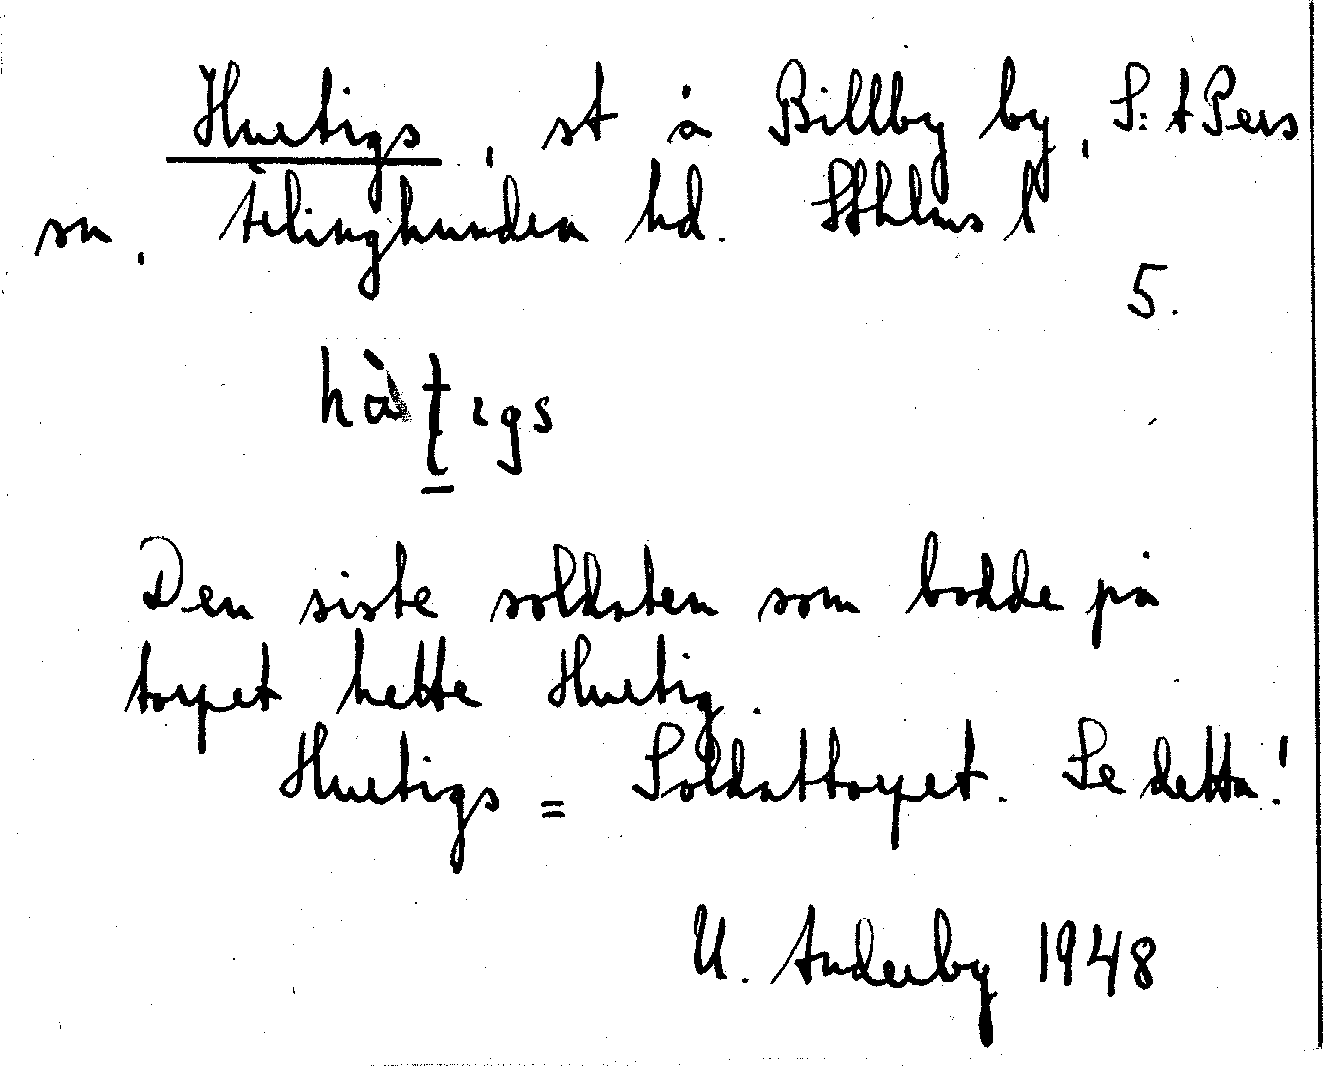 Hurtigs, st å Billby by, S:t Pers
sn, Ærlinghundra hd. Sthlms l
5.
hàt̲ıgs
Den siste soldaten som bodde på
torpet hette Hurtig.
Hurtigs = Soldattorpet. Se detta!
U. Anderby 1948